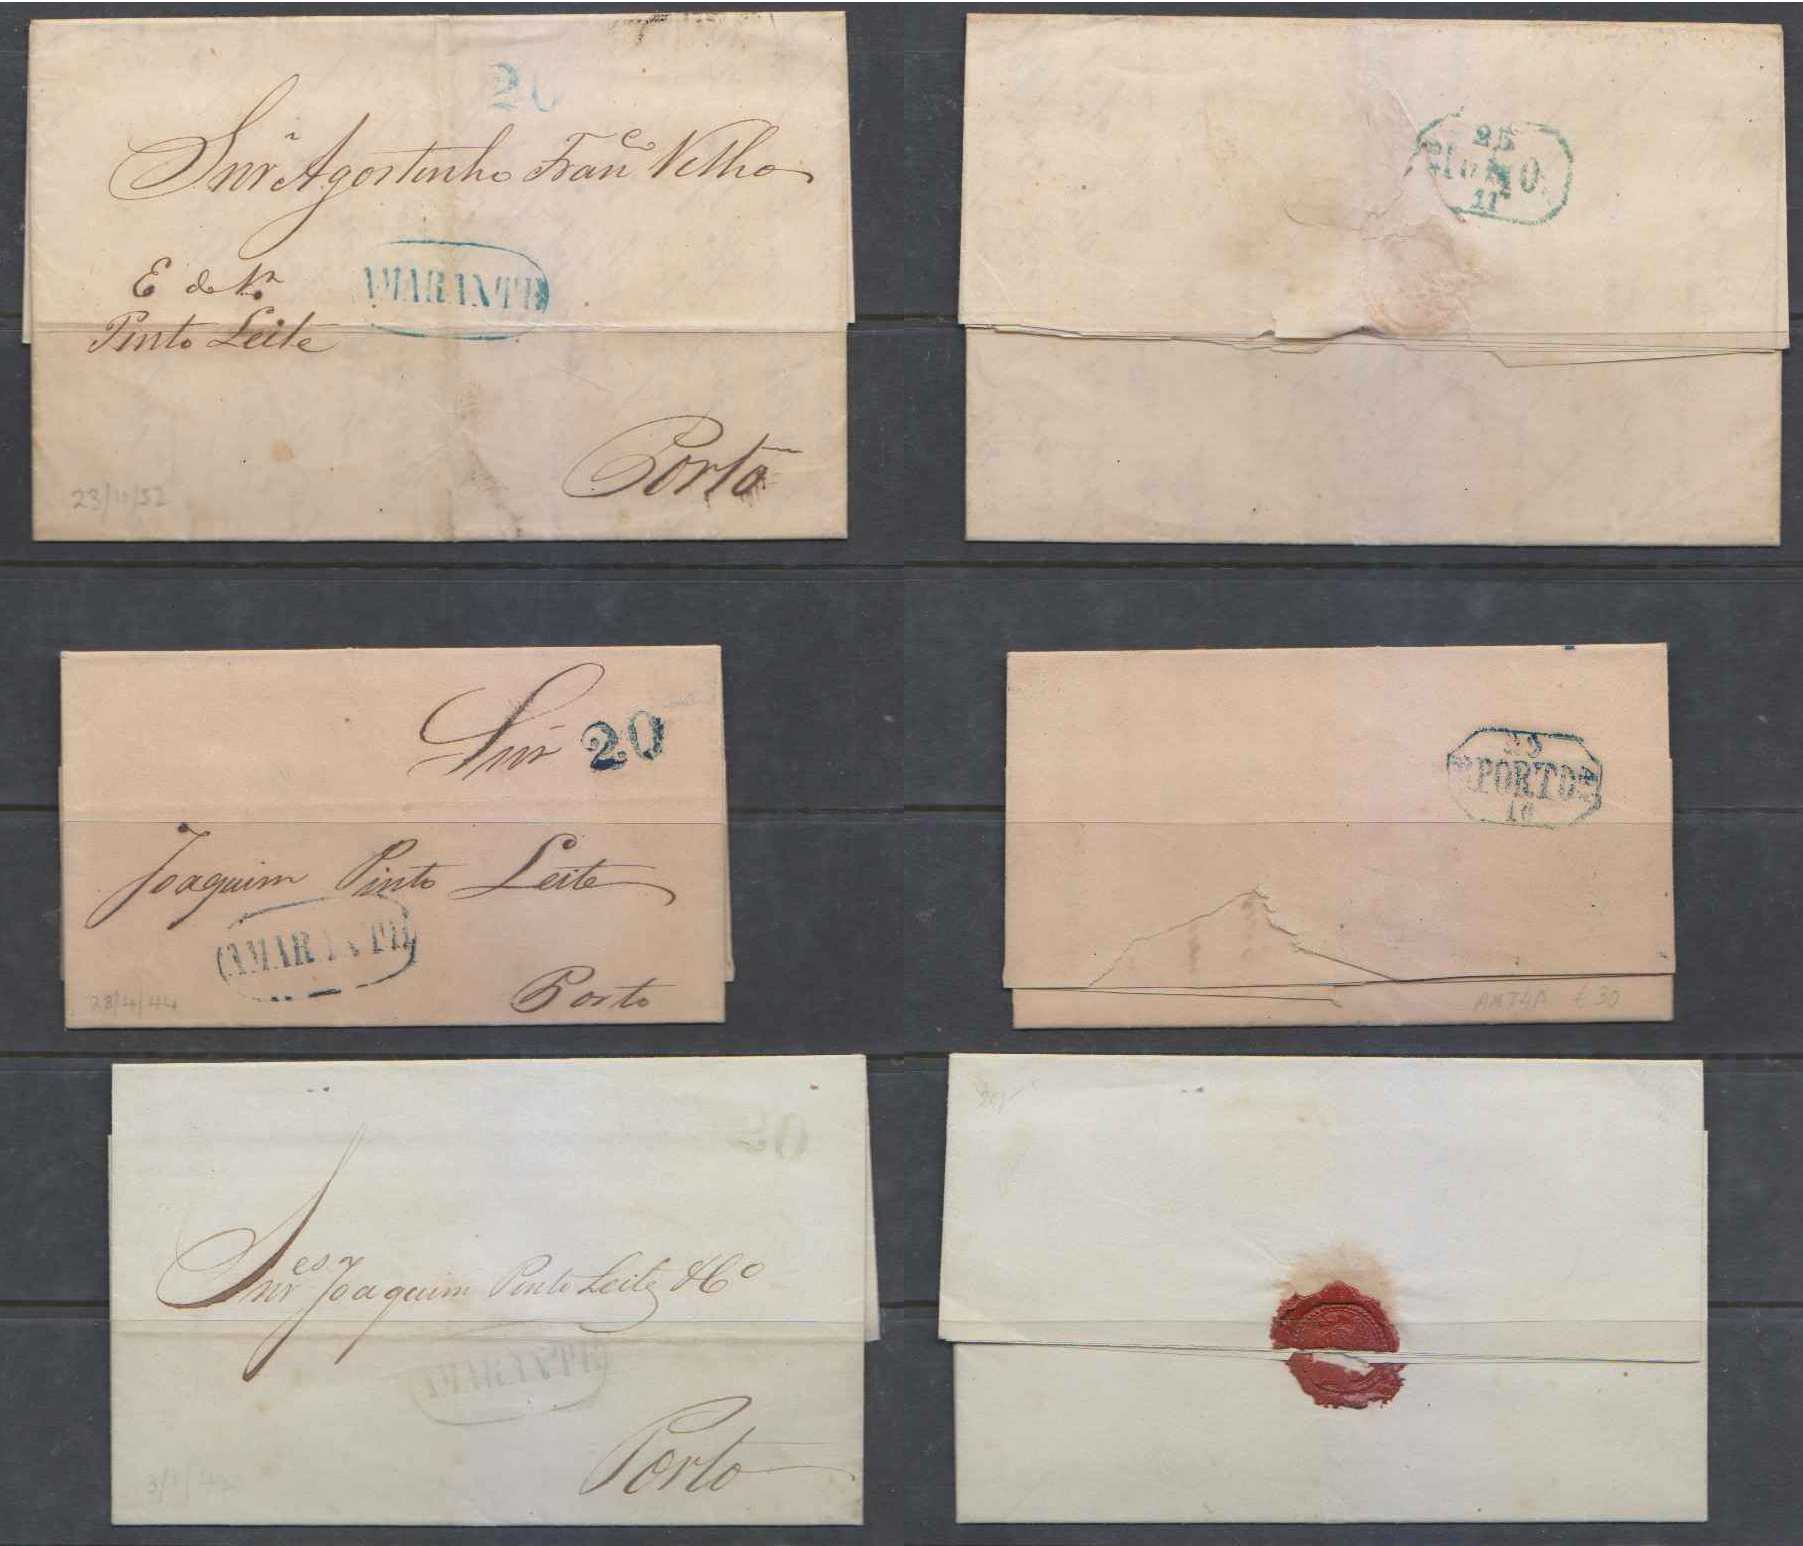 20
Snr Agostinho Franco Velho
E de Nr.
Pinto Leite
AMARANTE
Porto
23/11/52
25
PORTO
11
Snr 20
Joaquim Pinto Leite
AMARANTE
Porto
28/4/44
PORTO
10
AMT4A £30
20
Snres Joaquim Pinto Leite & Co
AMARANTE
Porto